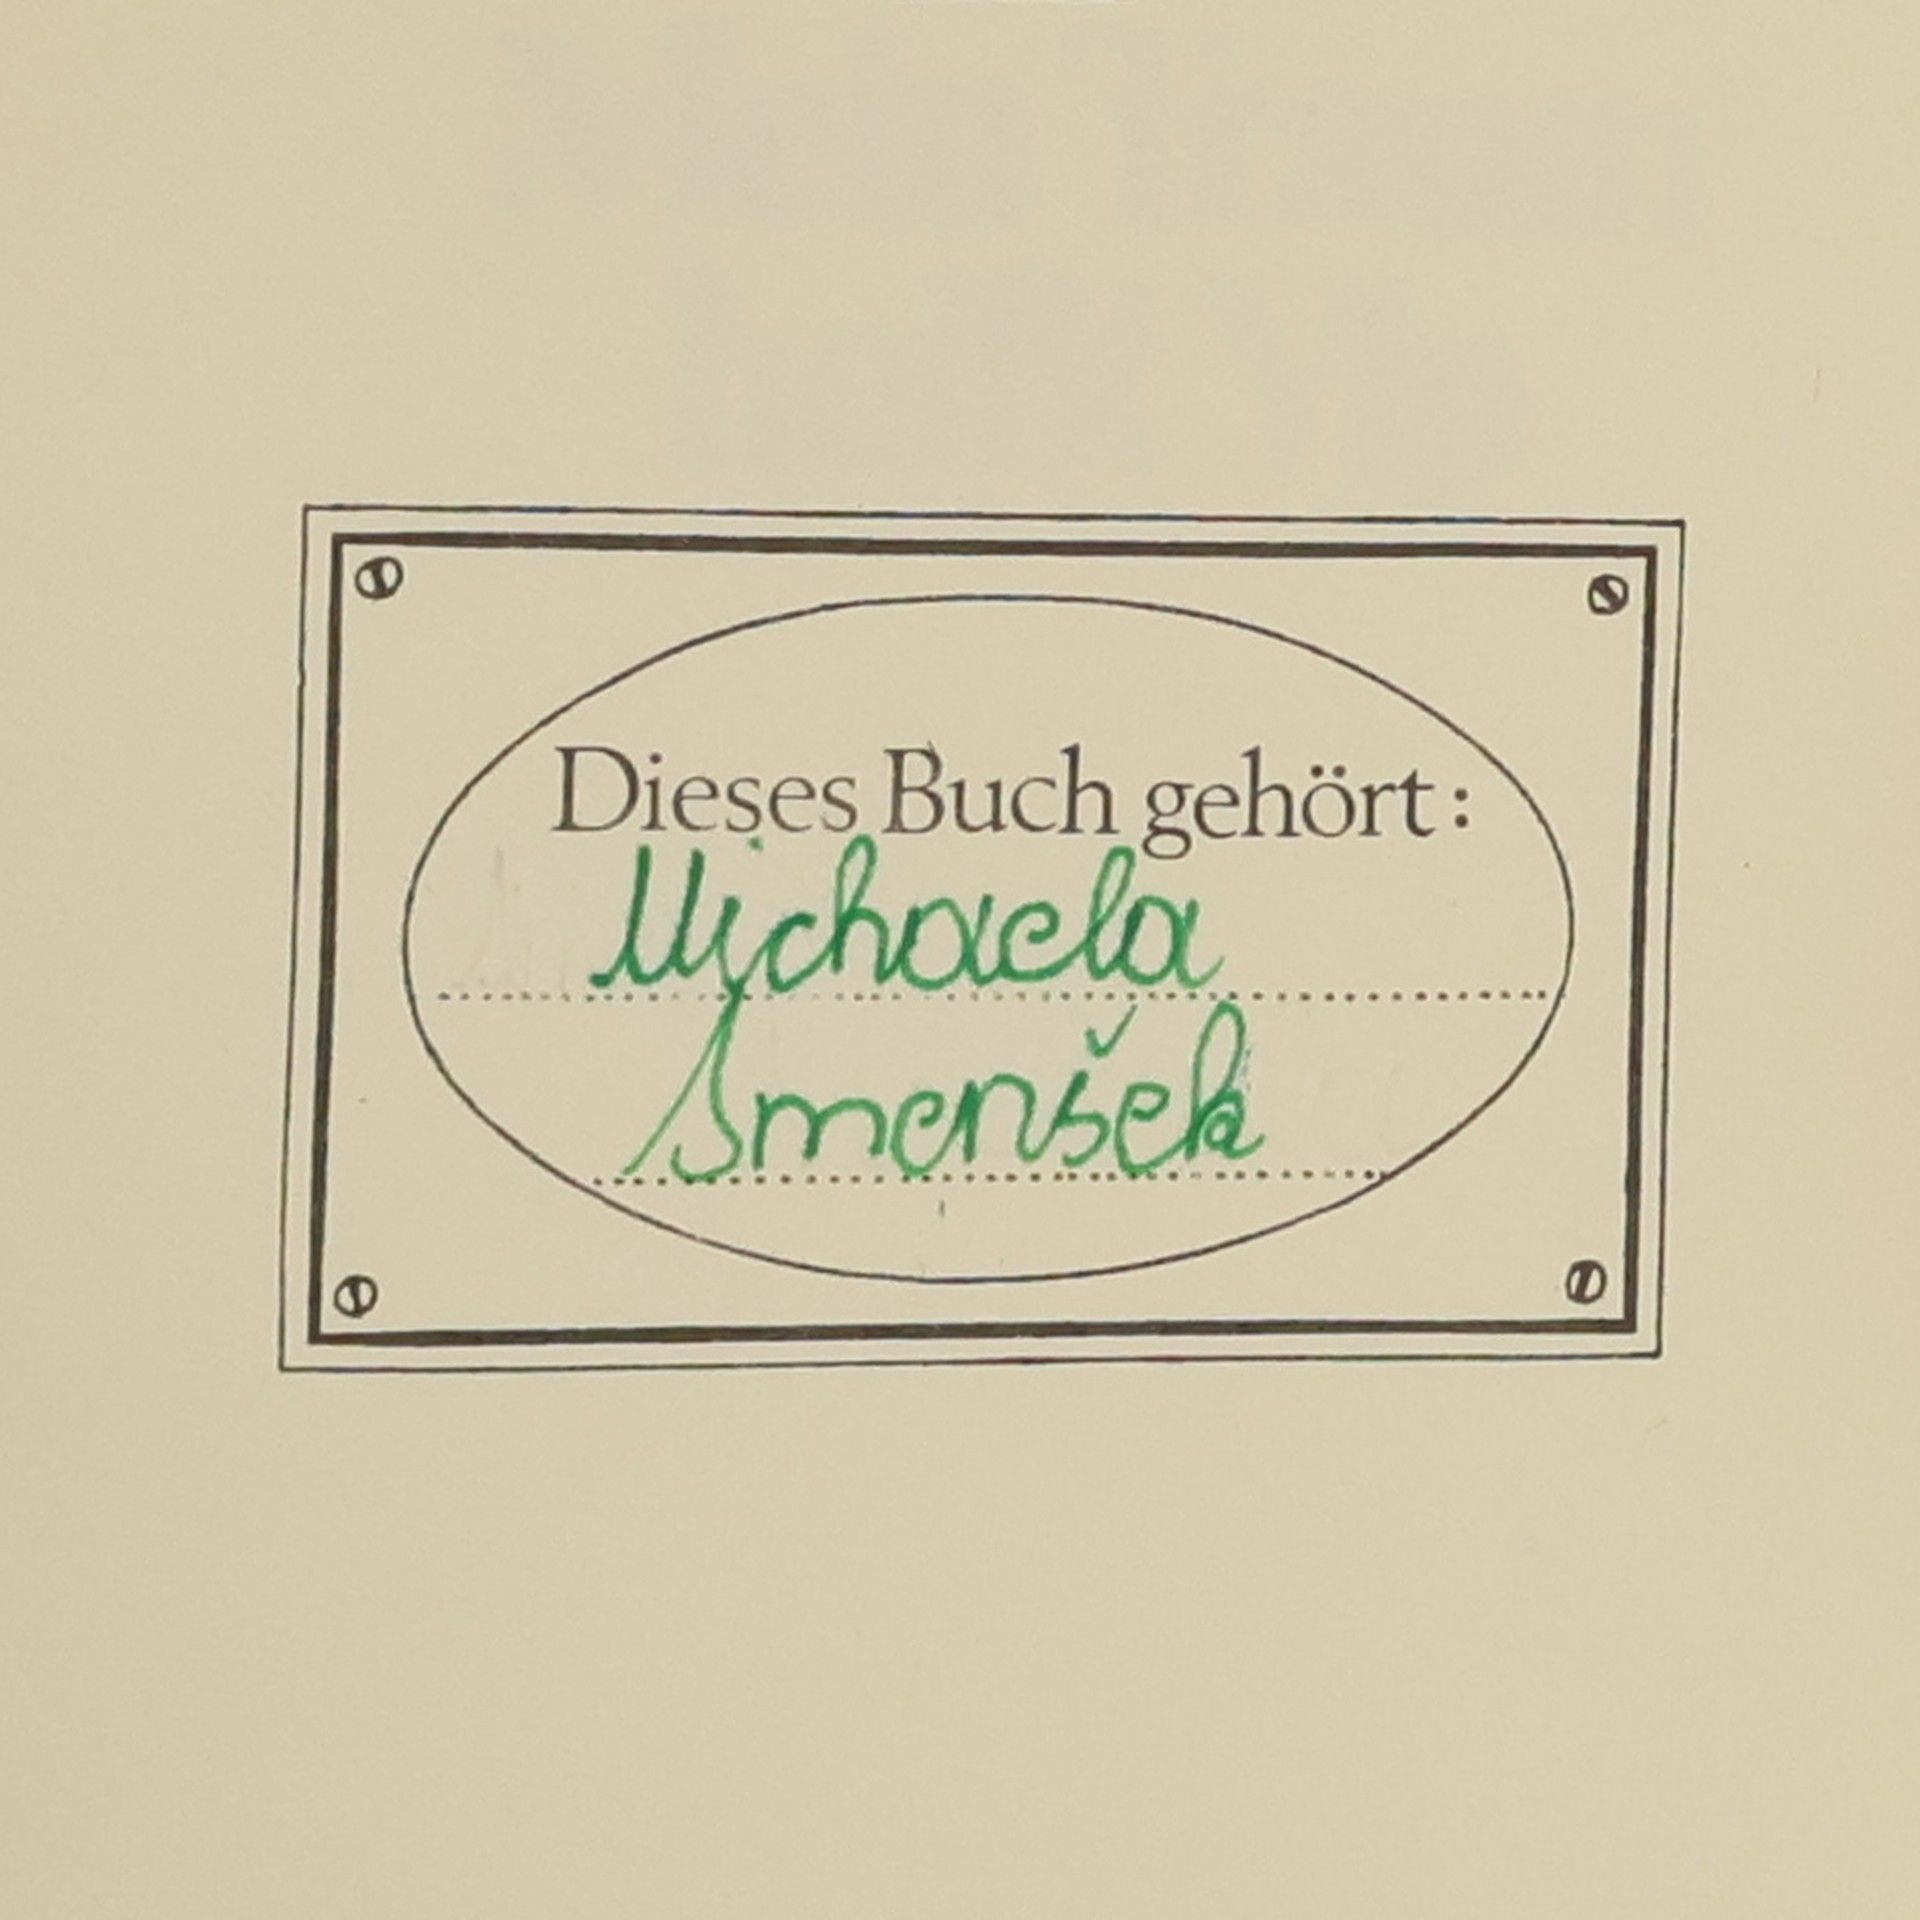 Dieses Buch gehört:
Michaela
Smenšek